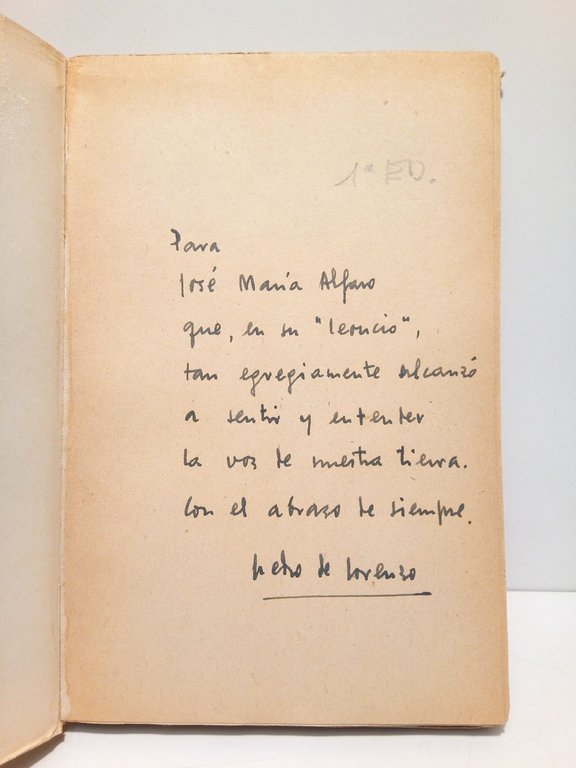 1ª ED.
Para
José María Alfaro
que, en su "Leoncio",
tan egregiamente alcanzó
a sentir y entender
la voz de nuestra tierra.
Con el abrazo de siempre.
Pedro de Lorenzo